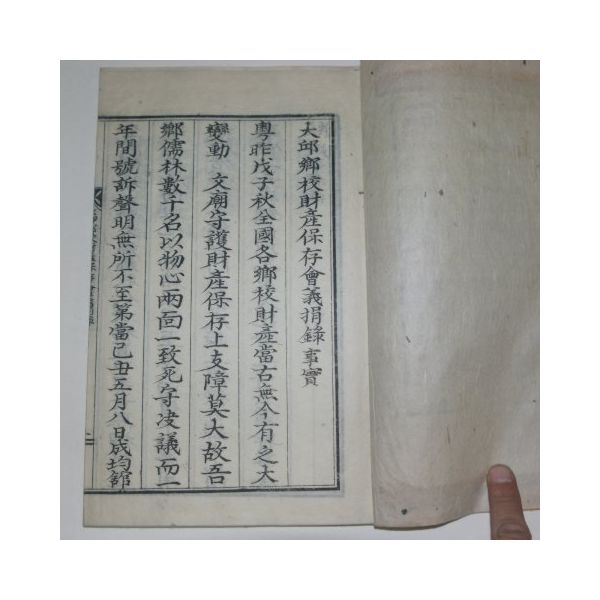 大邱鄕校財產保存會義捐錄事實
粤昨戊子秋全國各鄕校財產當古無今有之大
變動 文廟守護財產保存上支障莫大故吾
鄕儒林數千名以物心兩面一致死守决議而一
年間號訴聲明無所不至第當己丑五月八日成均舘